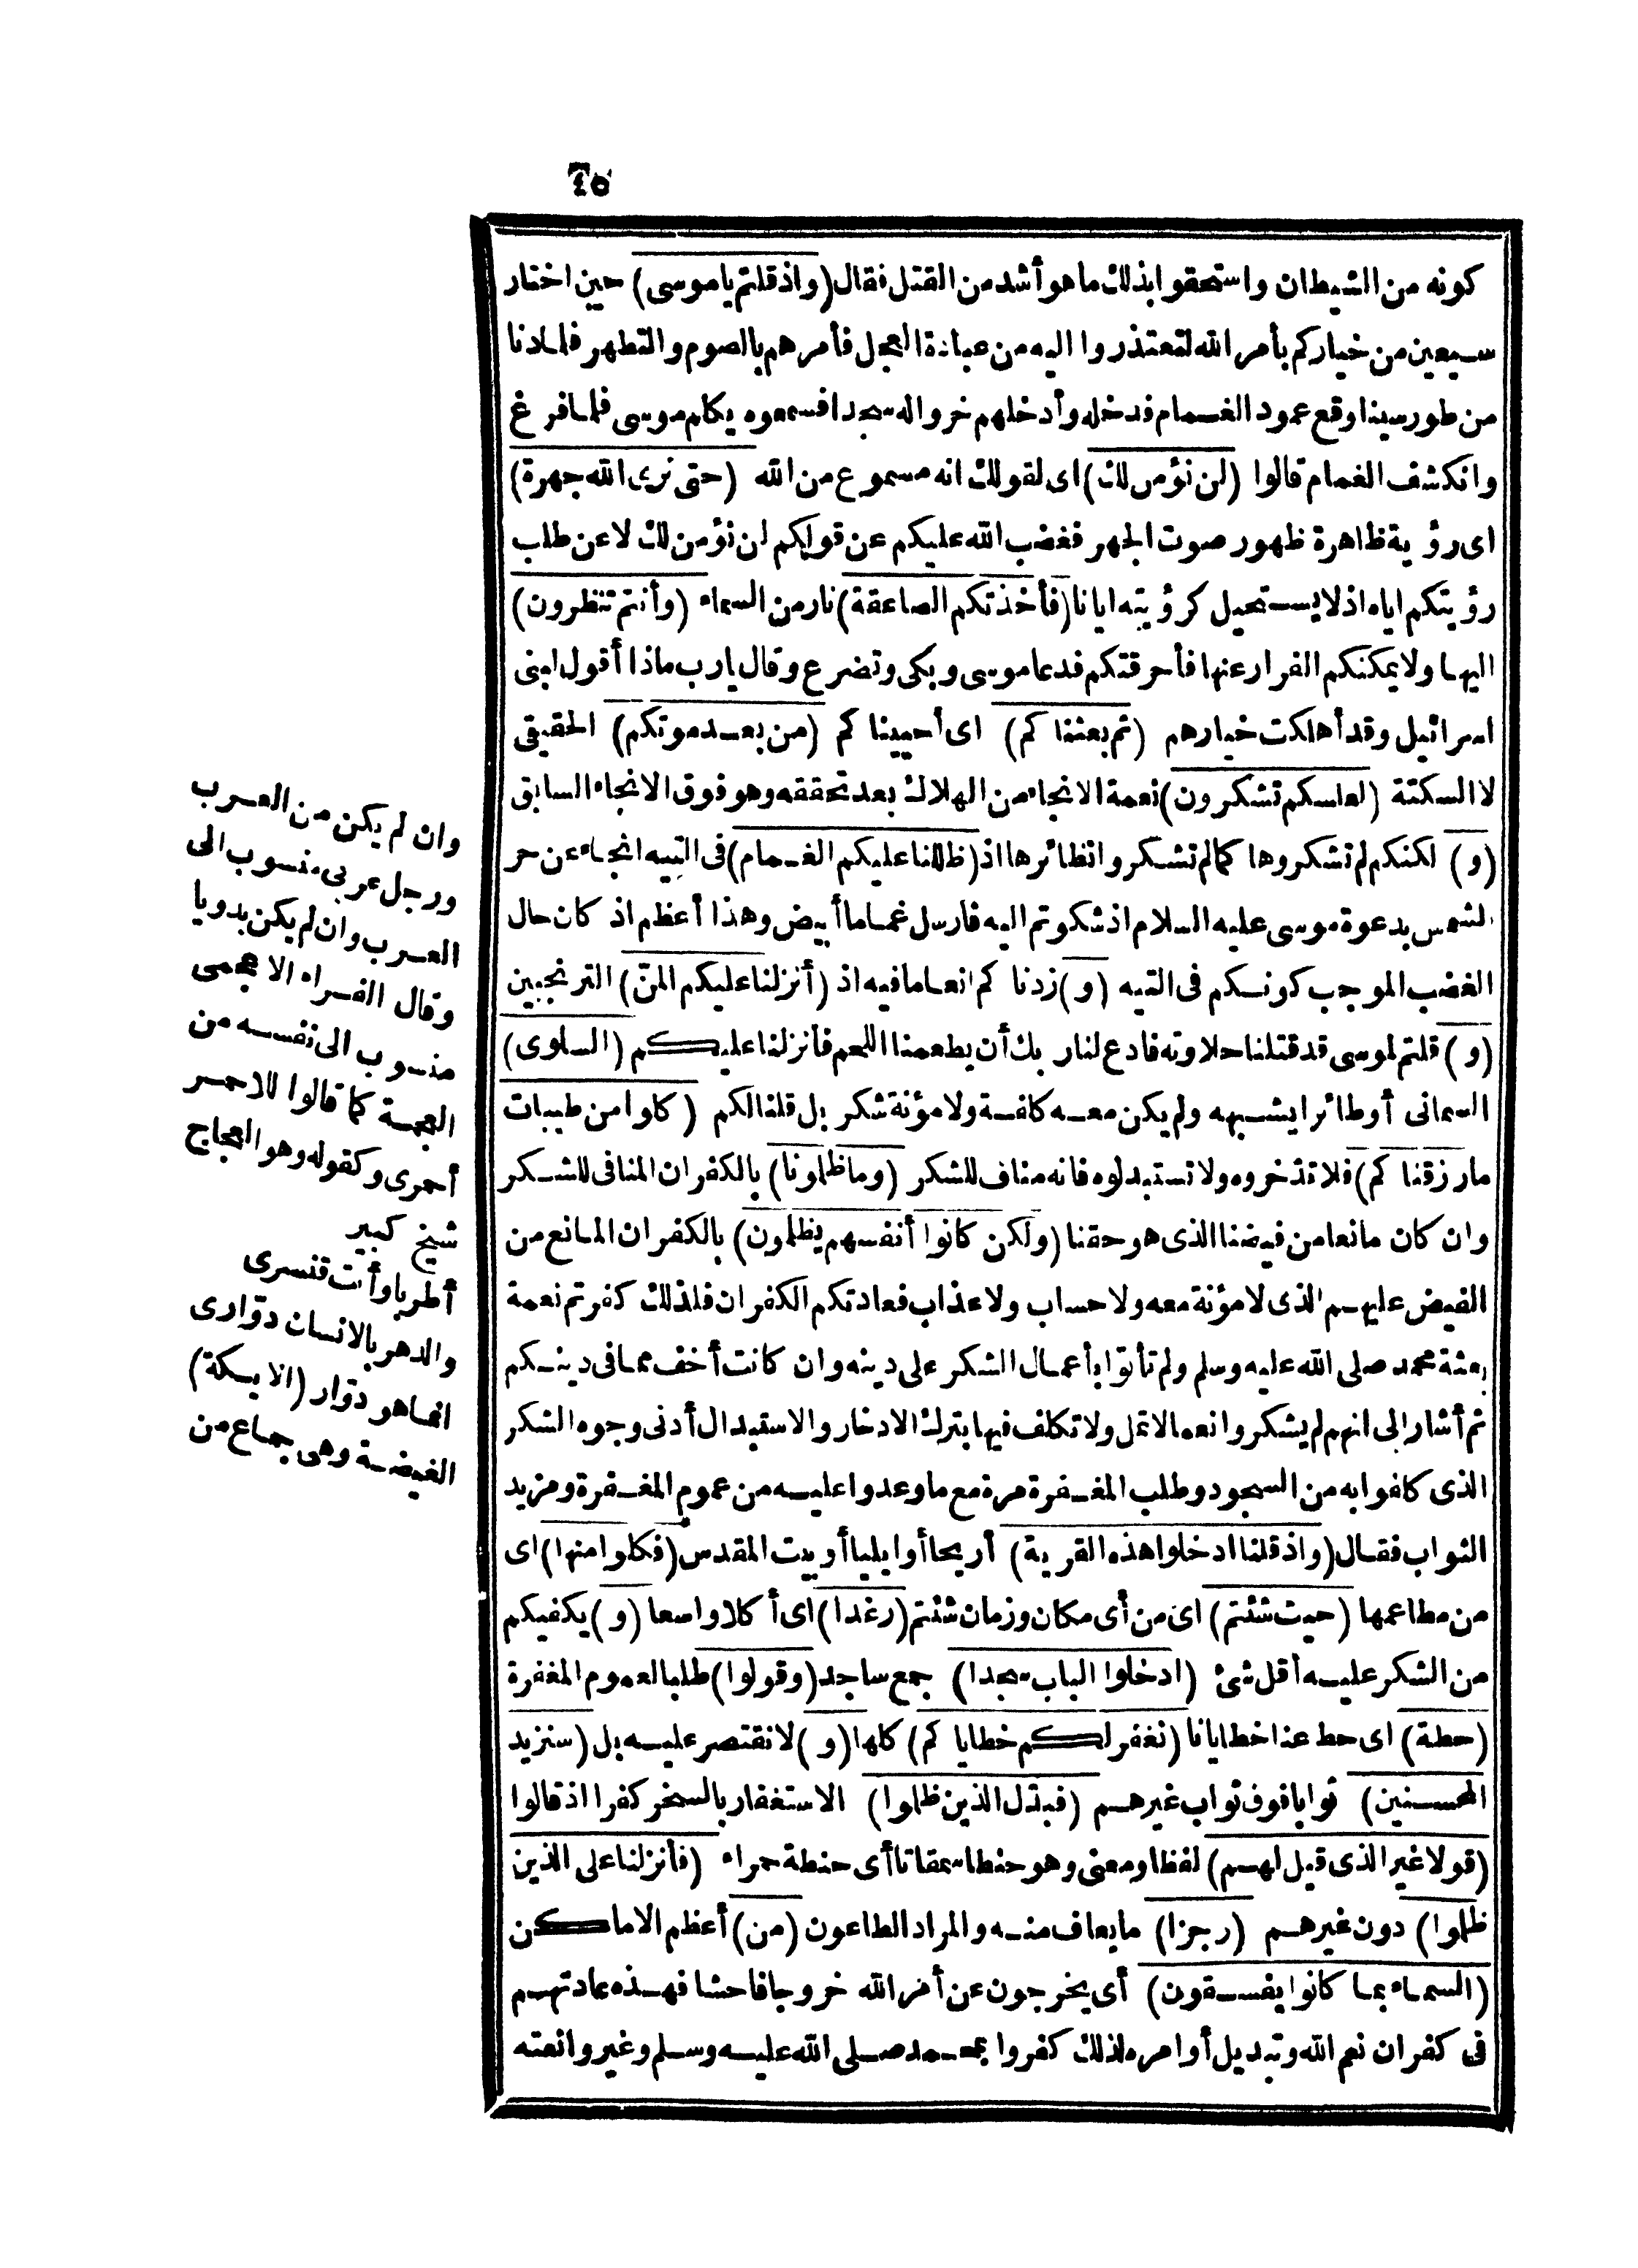 ٤٥
كونه من الشيطان واستحقوا بذلك ما هو أشد من القتل فقال (واذ قلتم يا موسى) حين اختار
سبعين من خياركم بأمر الله لتعتذروا اليه من عبادة العجل فأمرهم بالصوم والتطهر فلما دنا
من طور سينا وقع عمود الغمام فدخله وأدخلهم خروا له سجدا فسمعوه يكلم موسى فلما فرغ
وانكشف الغمام قالوا (لن نؤمن لك) اى لقولك انه مسموع من الله (حتى نرى الله جهرة)
اى رؤية ظاهرة ظهور صوت الجهر فغضب الله عليكم عن قولكم لن نؤمن لك لا عن طلب
رؤيتكم اياه اذ لا يستحيل كرؤيته ايانا (فأخذتكم الصاعقة) نار من السماء (وأنتم تنظرون)
اليها ولا يمكنكم الفرار عنها فأحرقتكم فدعا موسى وبكى وتضرع وقال يارب ماذا أقول لبنى
اسرائيل وقد أهلكت خيارهم (ثم بعثنا كم) اى أحيينا كم (من بعد موتكم) الحقيقى
لا السكتة (لعلكم تشكرون) نعمة الانجاء من الهلاك بعد تحققه وهو فوق الانجاء السابق
(و) لكنكم لم تشكروها كما لم تشكروا نظائرها اذ (ظللنا عليكم الغمام) فى التيه انجاء عن حر
الشمس بدعوة موسى عليه السلام اذ شكوتم اليه فارسل غماما أبيض وهذا أعظم اذ كان حال
الغضب الموجب كونكم فى التيه (و) زدنا كم انعاما فيه اذ (أنزلنا عليكم المنّ) الترنجبين
(و) قلتم لموسى قد قتلنا حلاوته فادع لنا ربك أن يطعمنا اللحم فأنزلنا عليكم (السلوى)
السمانى أو طائرا يشبهه ولم يكن معه كلفة ولا مؤنة شكر بل قلنا لكم (كلوا من طيبات
ما رزقنا كم) فلا تذخروه ولا تستبدلوه فانه مناف للشكر (وما ظلمونا) بالكفران المنافى للشكر
وان كان مانعا من فيضنا الذى هو حقنا (ولكن كانوا أنفسهم يظلمون) بالكفران المانع من
الفيض عليهم الذى لا مؤنة معه ولا حساب ولا عذاب فعادتكم الكفران فلذلك كفرتم نعمة
بعثة محمد صلى الله عليه وسلم ولم تأتوا بأعمال الشكر على دينه وان كانت أخف مما فى دينكم
ثم أشار الى انهم لم يشكروا نعما لا تمل ولا تكلف فيها بترك الادخار والاستبدال أدنى وجوه الشكر
الذى كلفوا به من السجود وطلب المغفرة مرة مع ما وعدوا عليه من عموم المغفرة ومزيد
الثواب فقال (واذ قلنا ادخلوا هذه القرية) أريحا أو ايليا أو بيت المقدس (فكلوا منها) اى
من مطاعمها (حيث شئتم) اى من أى مكان وزمان شئتم (رغدا) اى أكلا واسعا (و) يكفيكم
من الشكر عليه أقل شئ (ادخلوا الباب سجدا) جمع ساجد (وقولوا) طلبا لعموم المغفرة
(حطة) اى حط عنا خطايانا (نغفر لكم خطايا كم) كلها (و) لا نقتصر عليه بل (سنزيد
المحسنين) ثوابا فوق ثواب غيرهم (فبدّل الذين ظلموا) الاستغفار بالسخر كفرا اذ قالوا
(قولا غير الذى قيل لهم) لفظا ومعنى وهو حنطا سمقاتا أى حنطة حمراء (فأنزلنا على الذين
ظلموا) دون غيرهم (رجزا) ما يعاف منه والمراد الطاعون (من) أعظم الاماكن
(السماء بما كانوا يفسقون) أى يخرجون عن أمر الله خروجا فاحشا فهذه عادتهم
فى كفران نعم الله وتبديل أوامره لذلك كفروا بمحمد صلى الله عليه وسلم وغيروا نعته
وان لم يكن من العرب
ورجل عربى منسوب الى
العرب وان لم يكن بدويا
وقال الفراء الاعجمى
منسوب الى نفسه من
العجمة كما قالوا للاحمر
أحمرى وكقوله وهو العجاج
شيخ كبير
أطربا وأنت قنسرى
والدهر بالانسان دوّارى
انما هو دوّار (الايكة)
الغيضة وهى جماع من